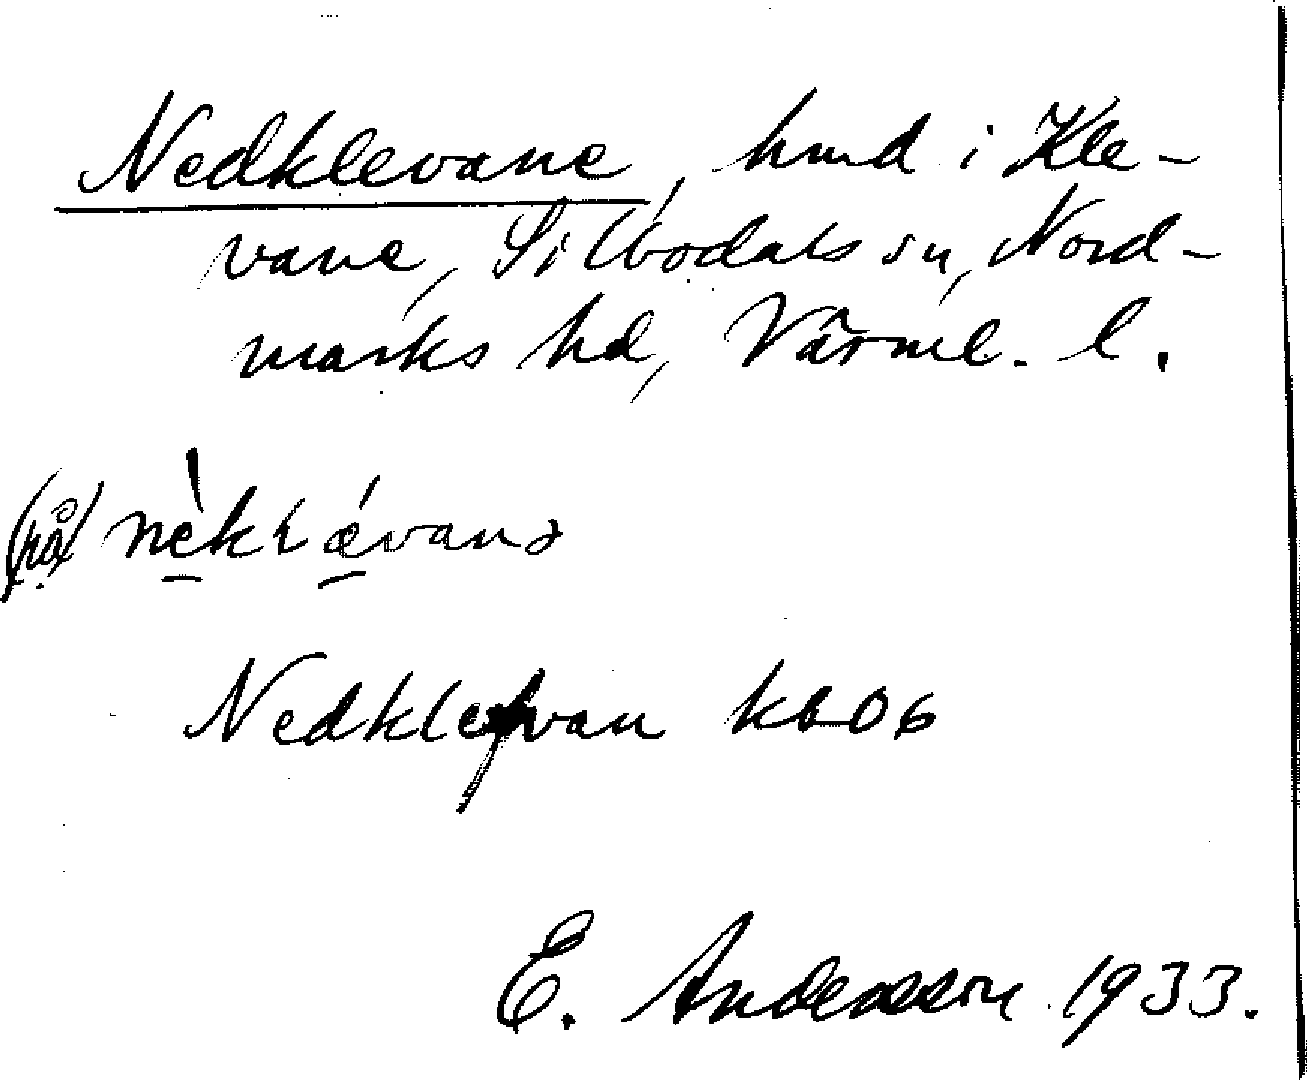 Nedklevane, hmd i Kle-
vane, Silbodals sn, Nord-
marks hd, Värml. l.
(på) nèkɽǽvanə
Nedklefvan kb 06
E. Andersson 1933.